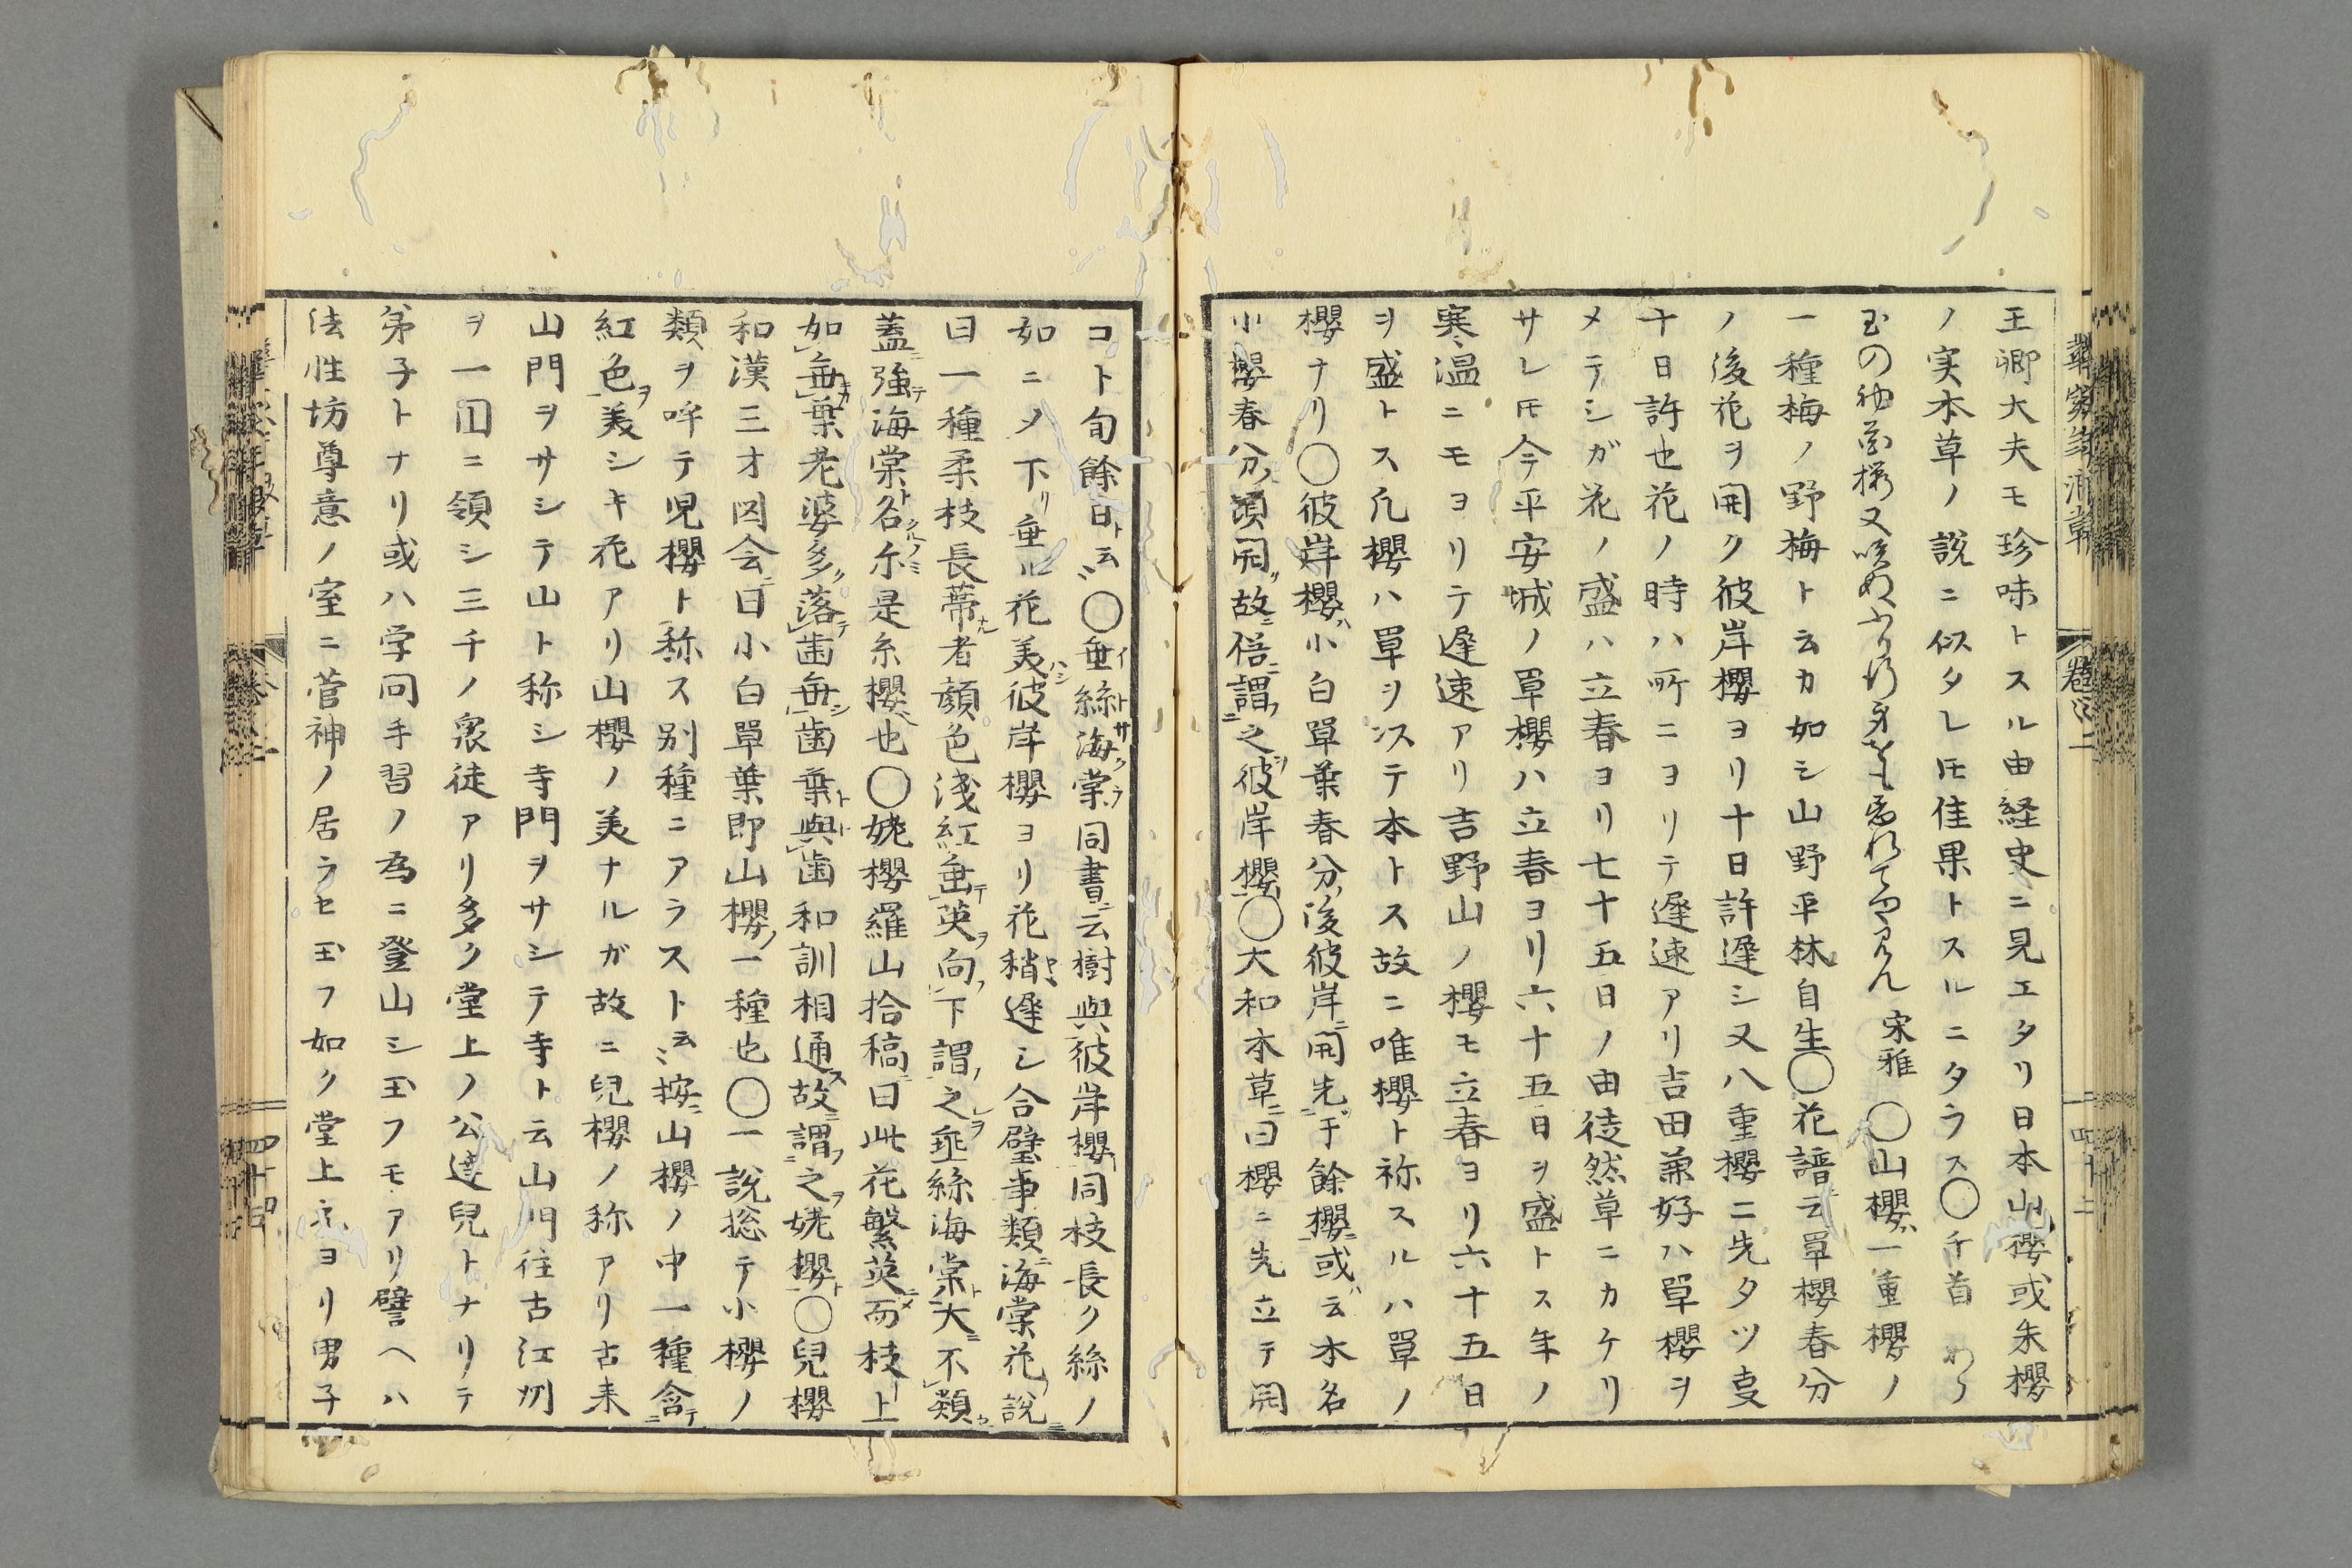 王卿大夫モ珍味トスル由経史ニ見エタリ日本山櫻或朱櫻
ノ実本草ノ説ニ似タレ𪜈佳果トスルニタラス〇千首
宋雅 〇山櫻ハ一重櫻ノ
一種梅ノ野梅ト云カ如シ山野平林自生〇花譜云單櫻春分
ノ後花ヲ開ク彼岸櫻ヨリ十日許遅シ又八重櫻ニ先タツ叓
十日許也花ノ時ハ所ニヨリテ遅速アリ吉田兼好ハ單櫻ヲ
メテシガ花ノ盛ハ立春ヨリ七十五日ノ由徒然草ニカケリ
サレ𪜈今平安城ノ單櫻ハ立春ヨリ六十五日ヲ盛トス年ノ
寒温ニモヨリテ遅速アリ吉野山ノ櫻モ立春ヨリ六十五日
ヲ盛トス凡櫻ハ單ヲ以テ本トス故ニ唯櫻ト称スルハ單ノ
櫻ナリ〇彼岸櫻ハ小白單葉春分ノ後彼岸ニ開先于餘櫻或云木名
小櫻春分ノ頃開故ニ俗ニ謂之彼岸櫻〇大和本草ニ曰櫻ニ先立テ開
コト旬餘日ト云〻〇垂絲海棠イトサクラ同書ニ云樹與彼岸櫻同枝長ク絲ノ
如ニメ下リ垂ル花美ハシ彼岸櫻ヨリ花稍ヤヽ遅シ合璧事類ニ海棠花ノ説ニ
曰一種柔枝長蔕ナル者顔色淺紅垂テ英ヲ向フ下ニ謂之垂絲海棠ト大ニ不類
蓋強テ海棠ト名クルノミ尓是糸櫻也〇姥櫻羅山拾稿ニ曰此花繁英ニメ而枝上
如無葉老婆多ク落歯無シ歯葉ト與歯和訓相通ス故ニ謂之姥櫻ト〇兒櫻
和漢三才図会ニ曰小白單葉即山櫻ノ一種也〇一説捴テ小櫻ノ
類ヲ呼テ児櫻ト称ス別種ニアラスト云〻按ニ山櫻ノ中一種含テ
紅色ヲ美シキ花アリ山櫻ノ美ナルガ故ニ兒櫻ノ称アリ古来
山門ヲサシテ山ト称シ寺門ヲサシテ寺ト云山門往古江州
ヲ一圓ニ領シ三千ノ衆徒アリ多ク堂上ノ公達兒トナリテ
弟子トナリ或ハ学问手習ノ為ニ登山シ玉フモアリ譬ヘハ
法性坊尊意ノ室ニ菅神ノ居ラセ玉フ如ク堂上方ヨリ男子